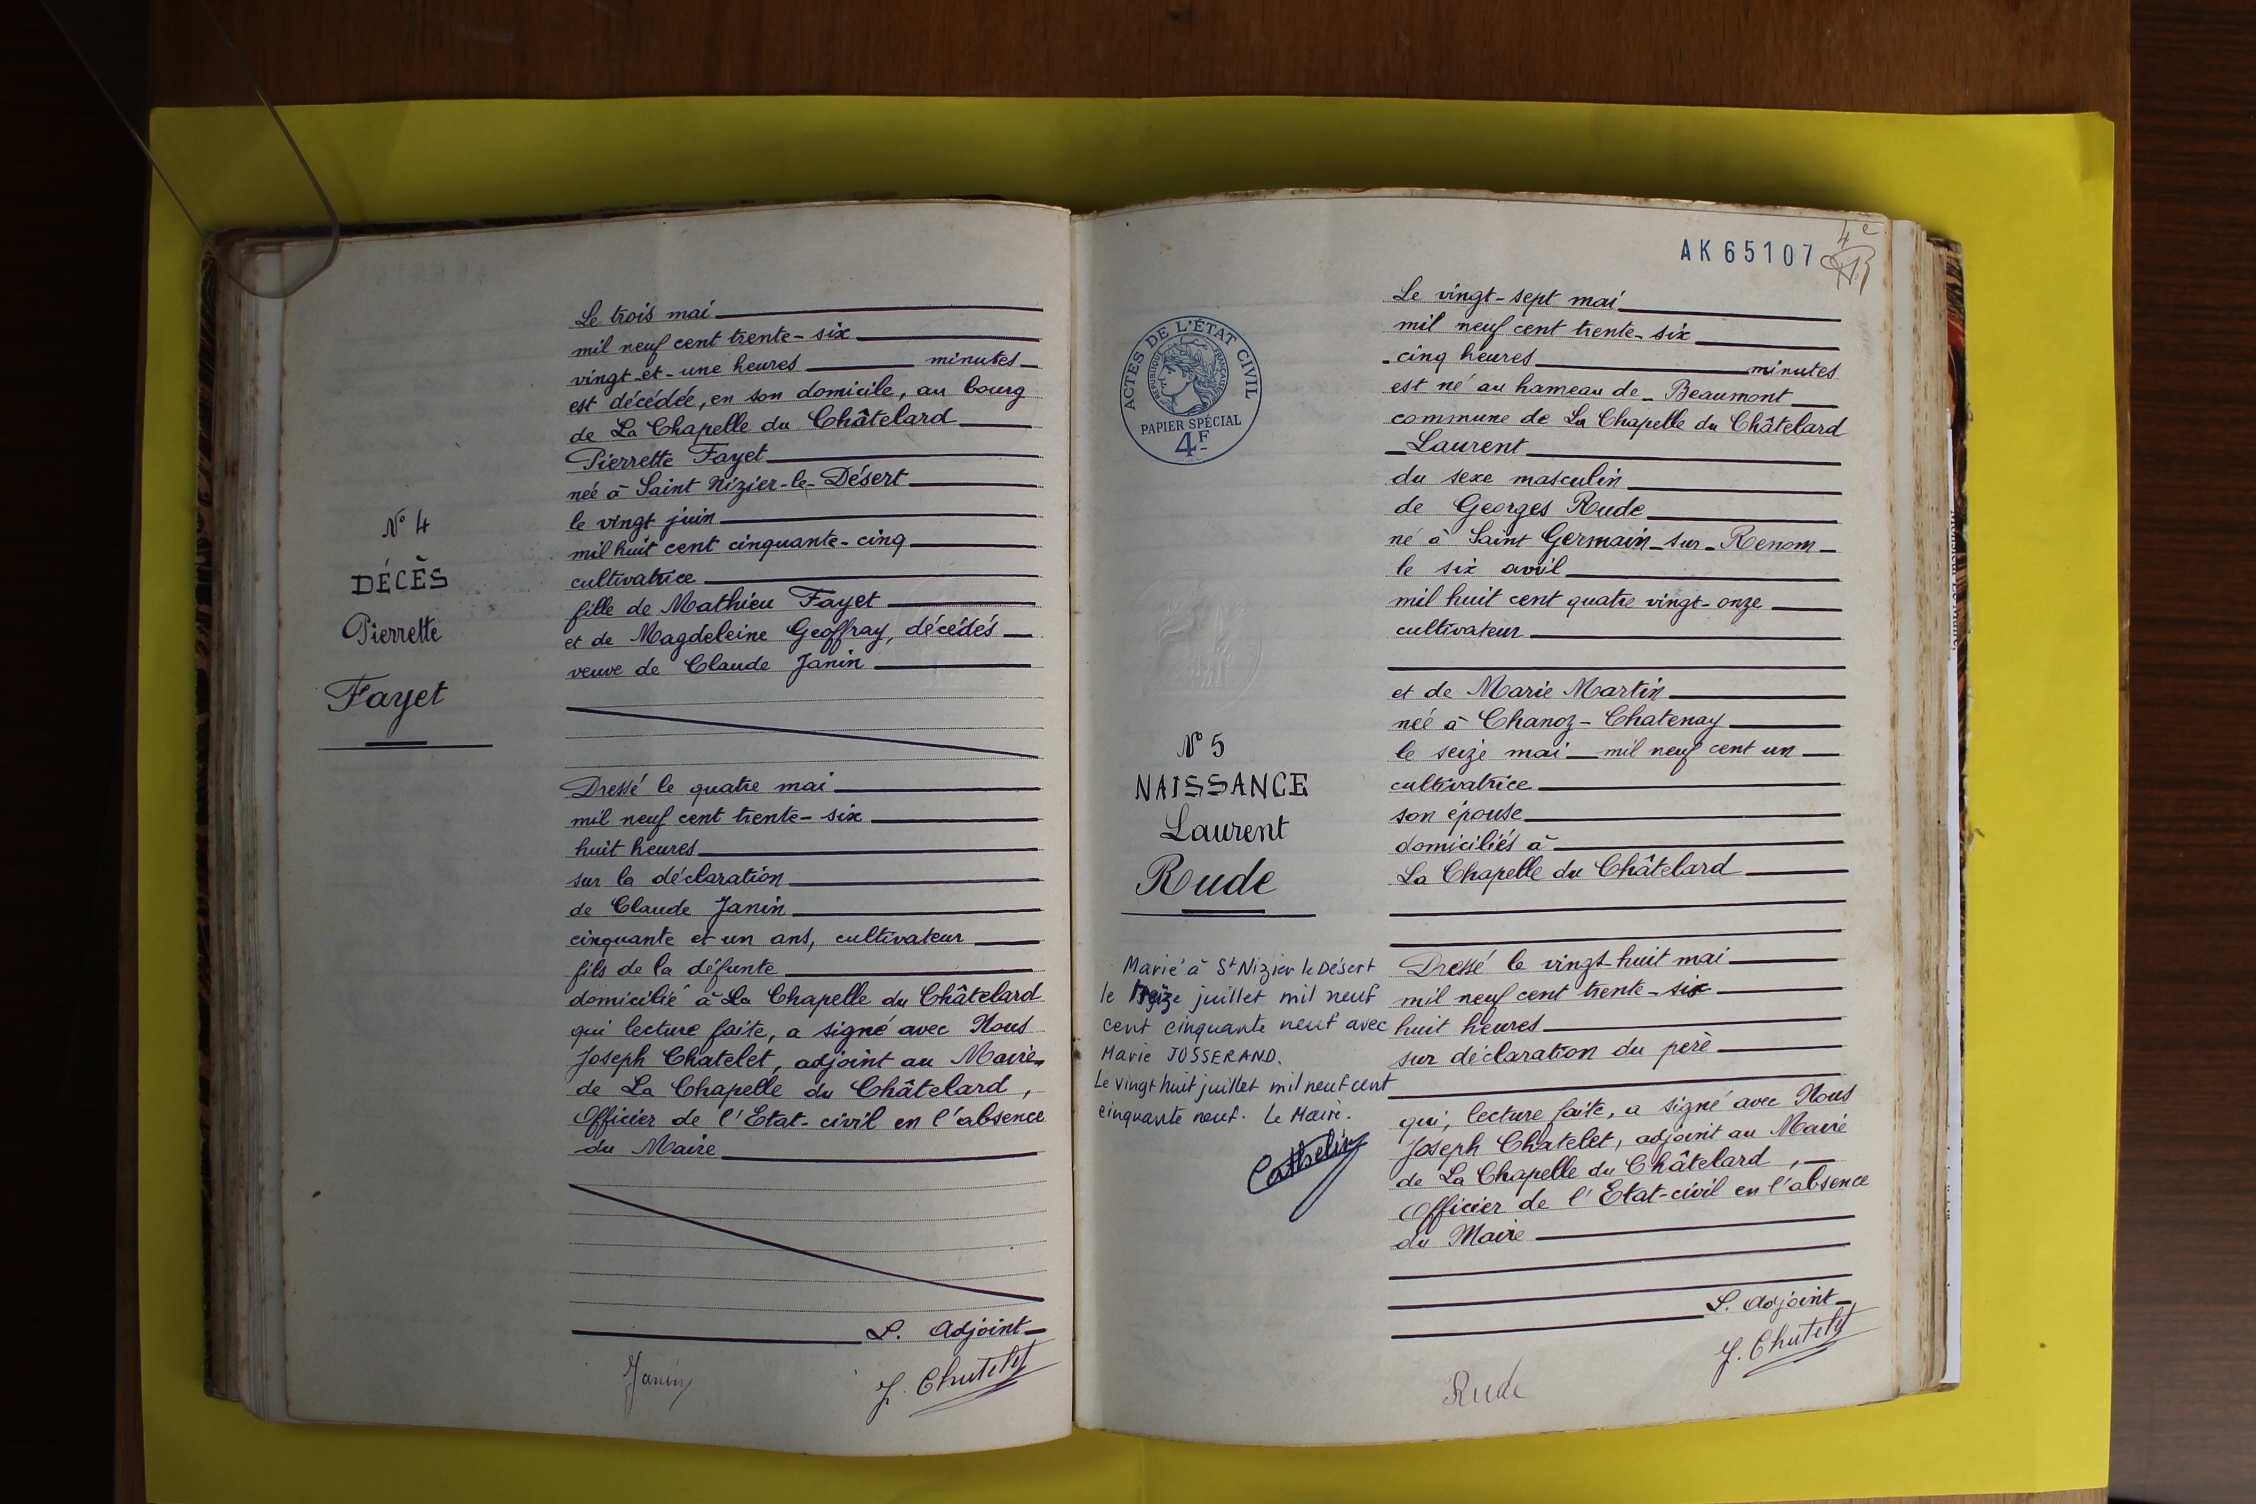 N° 4
DÉCÈS
Pierrette
Fayet
Le trois mai
mil neuf cent trente-six
vingt-et-une heures minutes
est décédée, en son domicile, au bourg
de La Chapelle du Châtelard
Pierrette Fayet
née à Saint Nizier-le-Désert
le vingt juin
mil huit cent cinquante-cinq
cultivatrice
fille de Mathieu Fayet
et de Magdeleine Geoffray, décédés
veuve de Claude Janin
Dressé le quatre mai
mil neuf cent trente-six
huit heures
sur la déclaration
de Claude Janin
cinquante et un ans, cultivateur
fils de la défunte
domicilié à La Chapelle du Châtelard
qui lecture faite, a signé avec Nous
Joseph Chatelet, adjoint au Maire
de La Chapelle du Châtelard,
Officier de l'Etat-civil en l'absence
du Maire
L. Adjoint
Janin J. Chatelet
AK 65107
4e
ACTES DE L'ÉTAT CIVIL
RÉPUBLIQUE FRANÇAISE
PAPIER SPÉCIAL
4F
N° 5
NAISSANCE
Laurent
Rude
Marié à St Nizier le Désert
le treize juillet mil neuf
cent cinquante neuf avec
Marie JOSSERAND.
Le vingt huit juillet mil neuf cent
cinquante neuf. Le Maire.
Le vingt-sept mai
mil neuf cent trente-six
cinq heures minutes
est né au hameau de Beaumont
commune de La Chapelle du Châtelard
Laurent
du sexe masculin
de Georges Rude
né à Saint Germain-sur-Renom
le six avril
mil huit cent quatre vingt-onze
cultivateur
et de Marie Martin
née à Chanoz-Chatenay
le seize mai mil neuf cent un
cultivatrice
son épouse
domiciliés à
La Chapelle du Châtelard
Dressé le vingt-huit mai
mil neuf cent trente-six
huit heures
sur déclaration du père
qui, lecture faite, a signé avec Nous
Joseph Chatelet, adjoint au Maire
de La Chapelle du Châtelard,
Officier de l'Etat-civil en l'absence
du Maire
L. Adjoint
Rude J. Chatelet